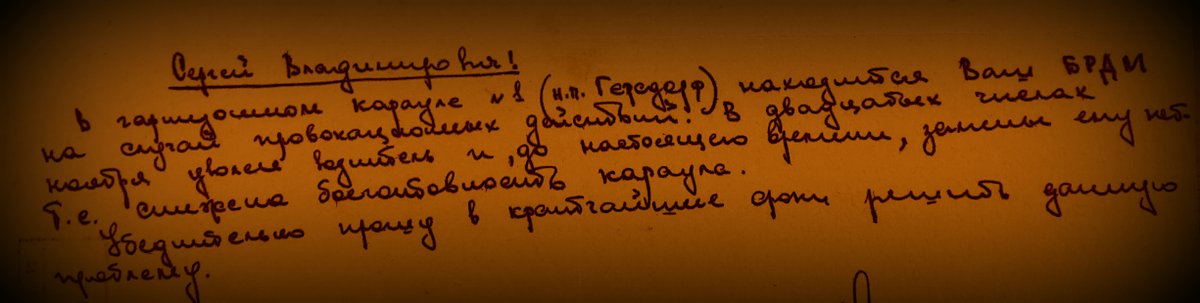 Сергей Владимирович!
В гарнизонном карауле №1 (н.п. Герсдорф) находится Ваш БРДМ
на случай провокационных действий! В двадцатых числах
ноября уволен водитель и, до настоящего времени, замены ему нет.
Т.е. снижена боеготовность караула.
Убедительно прошу в кратчайшие сроки решить данную
проблему.